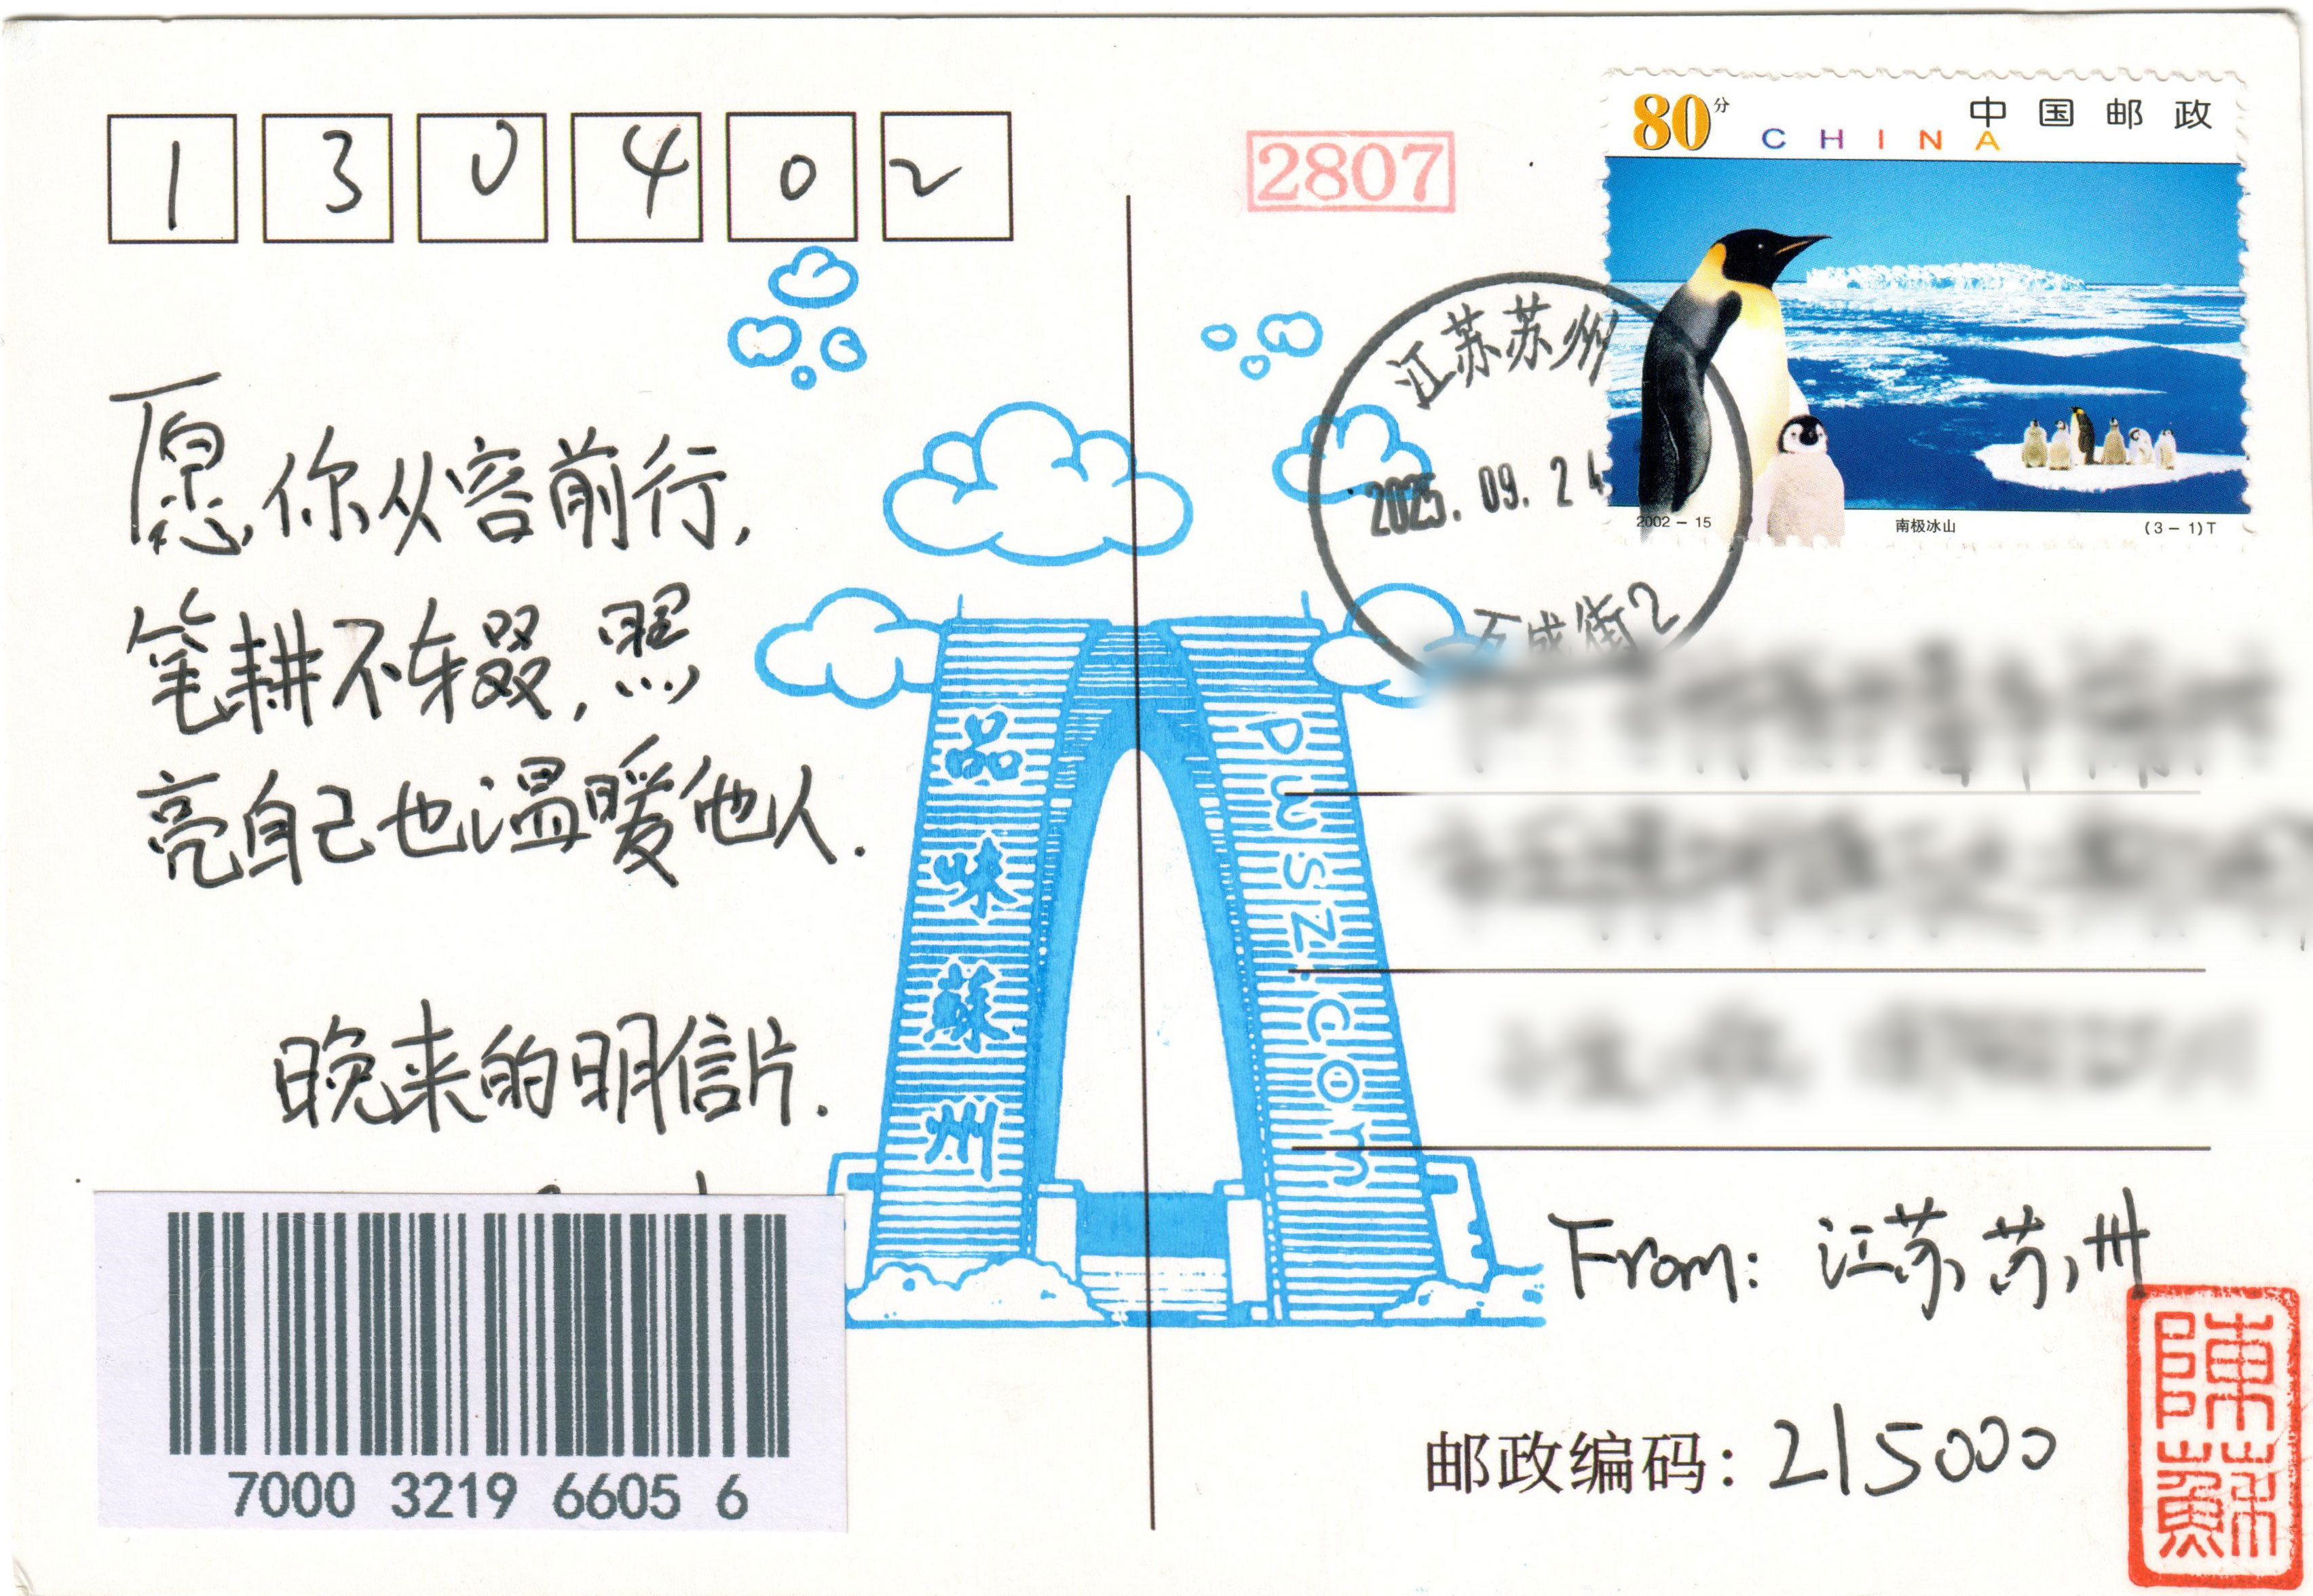 130402
愿你从容前行，
笔耕不辍，照
亮自己也温暖他人.
晚来的明信片.
7000 3219 6605 6
品味蘇州
pwsz.com
2807
80分
中国邮政
CHINA
2002-15
南极冰山
(3-1)T
江苏苏州
2025.09.24
街2
From: 江苏苏州
邮政编码: 215000
陳蘇